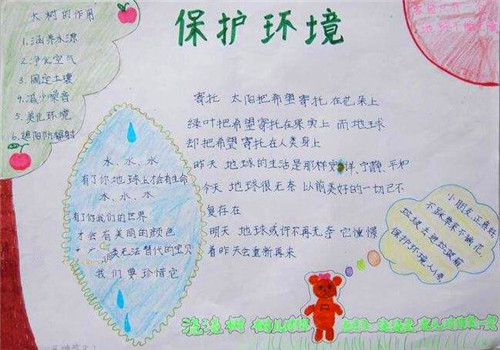 保护环境
大树的作用
1.涵养水源
2.净化空气
3.固定土壤
4.减少噪音
5.美化环境
6.遮阳防辐射
寄托 太阳把希望寄托在花朵上
绿叶把希望寄托在果实上 而地球
却把希望寄托在人类身上
昨天 地球的生活是那样 宁静、平和
今天 地球很无奈 以前美好的一切已不
复存在
明天 地球或许不再无奈 它憧憬
着昨天会重新再来
水、水、水
有了你地球上才会有生命
水、水、水
有了你我们的世界
才会有美丽的颜色
类无法替代的宝贝
我们要珍惜它
小朋友正着鞋
不踩草来不摘花,
垃圾去进垃圾箱
保护环境人人夸
浇浇树